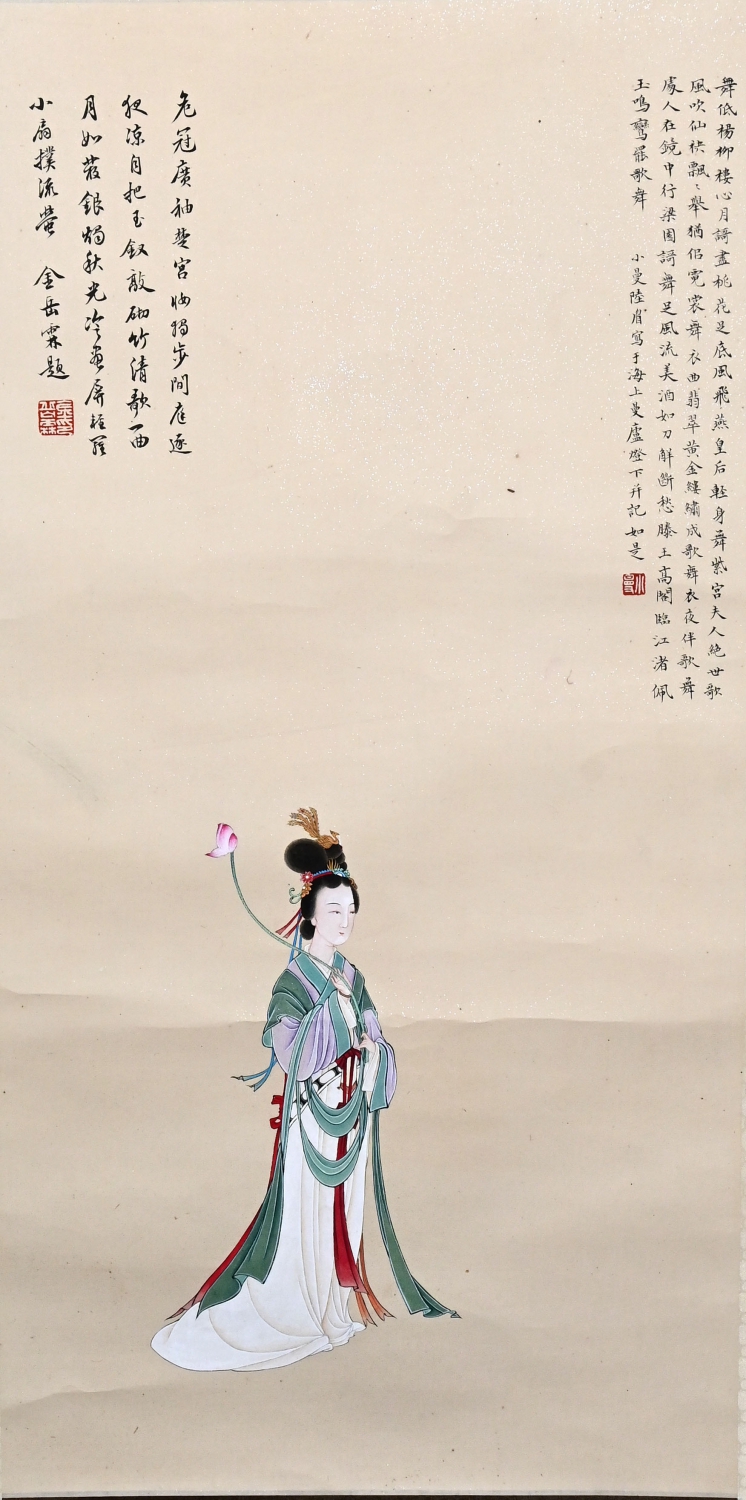 舞低楊柳樓心月謌盡桃花足底風飛燕皇后輕身舞紫宮夫人絶世歌
風吹仙袂飄飄舉猶侶霓裳舞衣曲翡翠黃金縷繡成歌舞衣夜伴歌舞
處人在鏡中行梁園謌舞足風流美酒如刀解斷愁滕王高閣臨江渚佩
玉鳴鸞罷歌舞
小曼陸眉寫于海上曼廬燈下并記如是
小曼
危冠廣袖楚宮妝獨步閒庭逐
夜涼自把玉釵敲砌竹清歌一曲
月如霜銀燭秋光冷畫屏輕羅
小扇撲流螢
金岳霖題